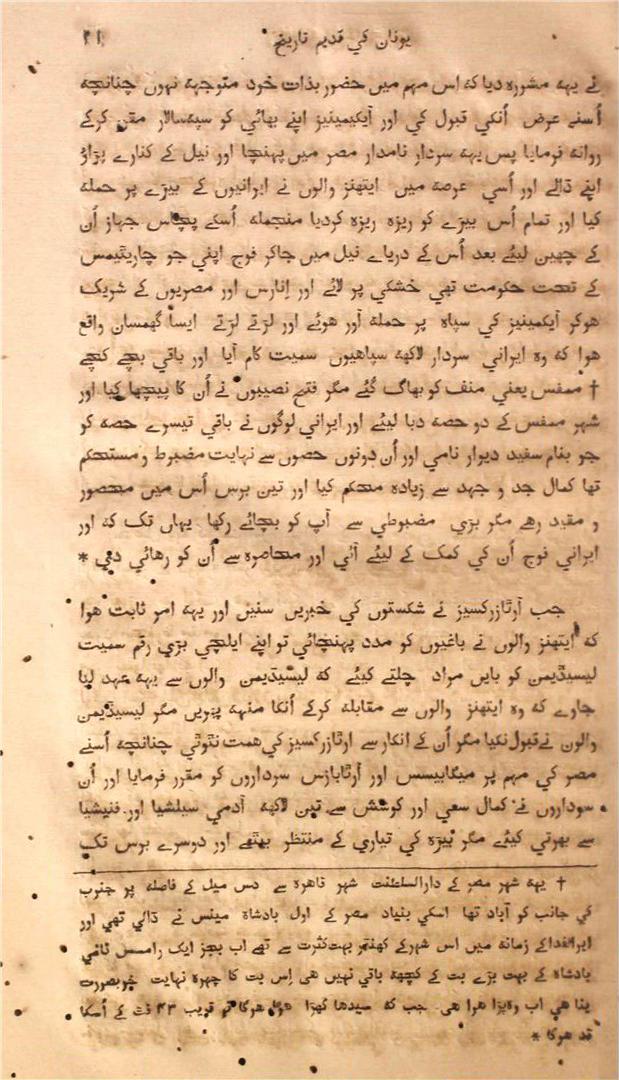 یونان کي قدیم تاریخ ۲۱
نے یہہ مشورہ دیا کہ اس مہم میں حضور بذات خود متوجہہ نہوں چنانچہ
اُسنے عرض اُنکي قبول کي اور آیکیمینیز اپنے بھائي کو سپہ‌سالار مقرر کرکے
روانہ فرمایا پس یہہ سردار نامدار مصر میں پہنچا اور نیل کے کنارے پڑاؤ
اپنے ڈالے اور اُسي عرصہ میں ایتھنز والوں نے ایرانیوں کے بیڑے پر حملہ
کیا اور تمام اُس بیڑے کو ریزہ ریزہ کردیا منجملہ اُسکے پچاس جہاز اُن
کے چھین لیئے بعد اُس کے دریاے نیل میں جاکر فوج اپني جو چاریٹیمس
کے تحت حکومت تھي خشکي پر لائے اور اِنارس اور مصریوں کے شریک
هوکر آیکمینیز کي سپاہ پر حملہ آور هوئے اور لڑتے لڑتے ایسا گھمسان واقع
هوا کہ وہ ایراني سردار لاکھہ سپاهیوں سمیت کام آیا اور باقي بچے کھچے
† ممفس یعني منف کو بھاگ گئے مگر فتح نصیبوں نے اُن کا پیچھا کیا اور
شہر ممفس کے دو حصہ دبا لیئے اور ایراني لوگوں نے باقي تیسرے حصہ کو
جو بنام سفید دیوار نامي اور اُن دونوں حصوں سے نہایت مضبوط و مستحکم
تھا کمال جد و جہد سے زیادہ محکم کیا اور تین برس اُس میں محصور
و مقید رهے مگر بڑي مضبوطي سے آپ کو بچائے رکھا یہاں تک کہ اور
ایراني فوج اُن کي کمک کے لیئے آئي اور محاصرہ سے اُن کو رهائي دي *
جب آرٹازرکسیز نے شکستوں کي خبریں سنیں اور یہہ امر ثابت هوا
کہ ایتھنز والوں نے باغیوں کو مدد پہنچائي تو اپنے ایلچي بڑي رقم سمیت
لیسیڈیمن کو بایں مراد چلتے کیئے کہ لیسیڈیمن والوں سے یہہ عہد لیا
جاوے کہ وہ ایتھنز والوں سے مقابلہ کرکے اُنکا منہہ پھریں مگر لیسیڈیمن
والوں نے قبول نکیا مگر اُن کے انکار سے ارٹازرکسیز کي همت نٹوٹي چنانچہ اُسنے
مصر کي مہم پر میگابیسس اور آرٹابازس سرداروں کو مقرر فرمایا اور اُن
سرداروں نے کمال سعي اور کوشش سے تین لاکھہ آدمي سیلشیا اور فنیشیا
سے بھرتي کیئے مگر بیڑہ کي تیاري کے منتظر بیٹھے اور دوسرے برس تک
† یہہ شہر مصر کے دارالسلطنت شہر قاهرہ سے دس میل کے فاصلہ پر جنوب
کي جانب کو آباد تھا اسکي بنیاد مصر کے اول بادشاہ مینس نے ڈالي تھي اور
ابوالفدا کے زمانہ میں اس شہر کے کھنڈر بہت کثرت سے تھے اب بجز ایک رامسس ثاني
بادشاہ کے بہت بڑے بت کے کچھہ باقي نہیں هی اِس بت کا چہرہ نہایت خوبصورت
بنا هي اب وہ پڑا هوا هی جب کہ سیدها کھڑا هوتا هوگا تو قریب ۴۳ فٹ کے اُسکا
قد هوگا *